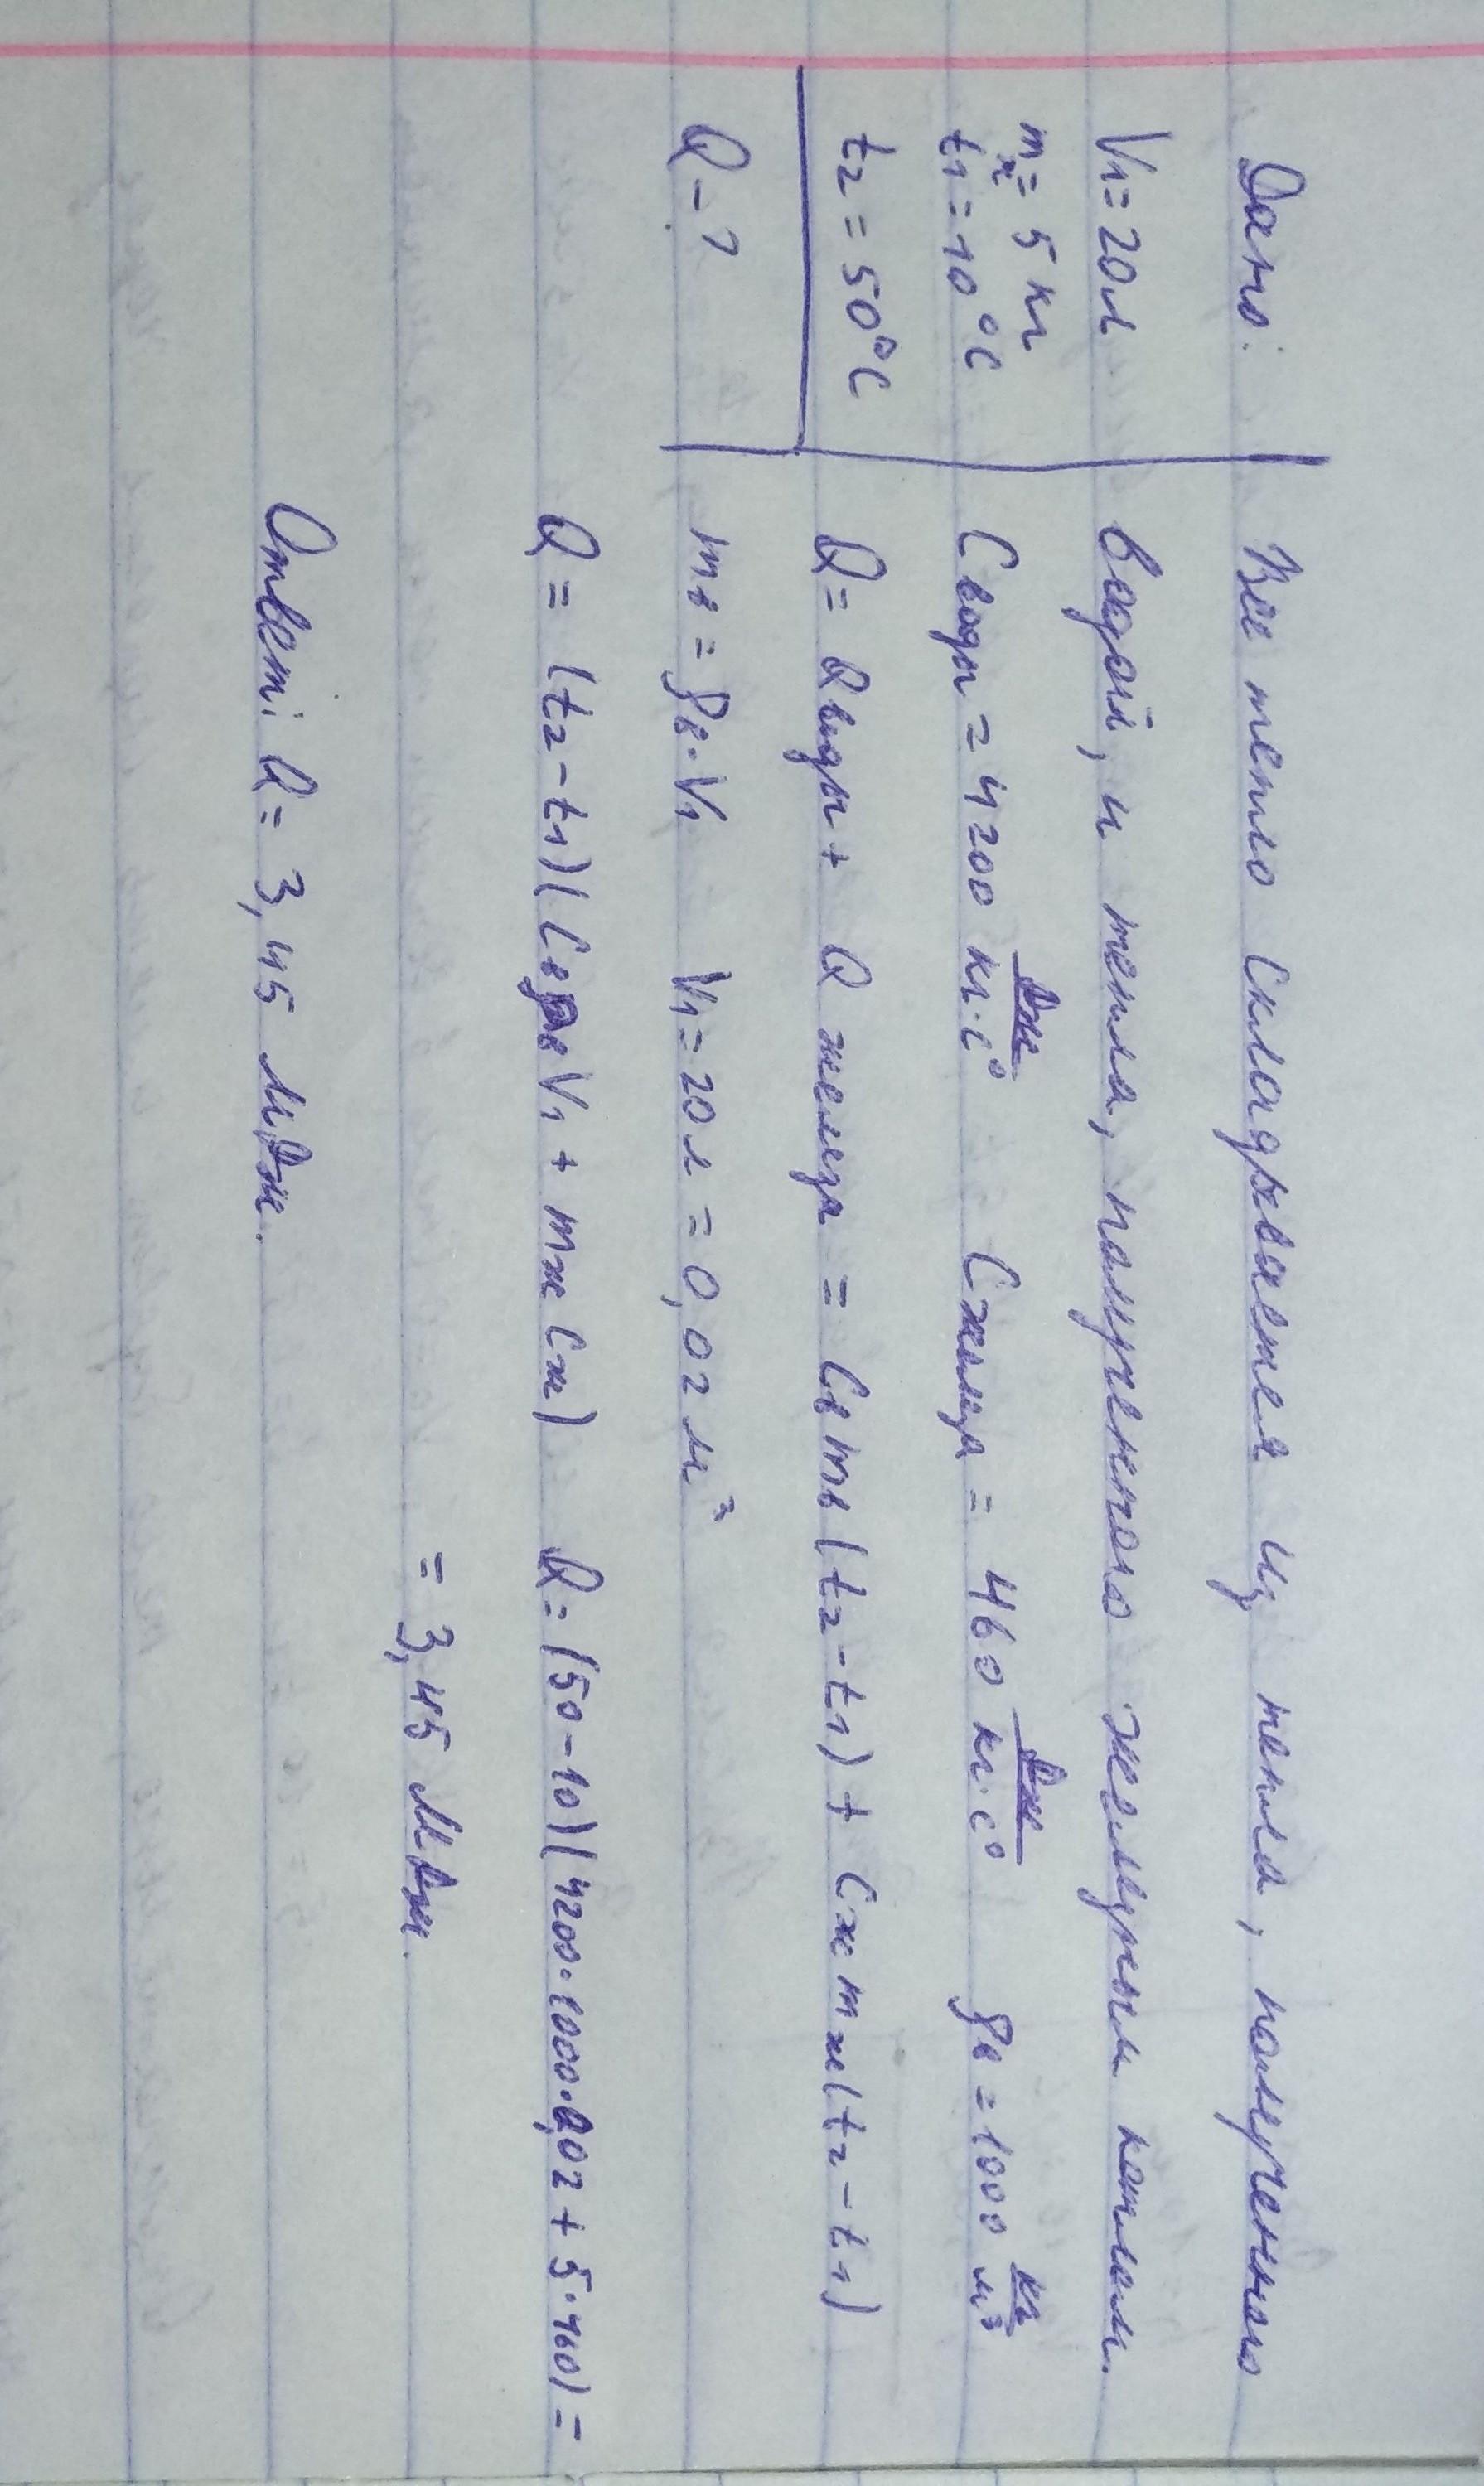 Дано:
V₁=20л
mж = 5 кг
t₁=10°C
t₂=50°C
Q-?
Все тепло складывается из тепла, полученного
водой, и тепла, полученного железным котлом.
Cводы=4200 Дж/кг·C° Cжелеза = 460 Дж/кг·C° ρв=1000 кг/м³
Q= Qводы+ Qжелеза = Cв mв (t₂-t₁) + Cж mж(t₂-t₁)
mв = ρв·V₁ V₁=20л = 0,02 м³
Q= (t₂-t₁)(CвρвV₁ + mж Cж) Q=(50-10)(4200·1000·0,02 + 5·460)=
= 3,45 МДж.
Ответ: Q= 3,45 МДж.